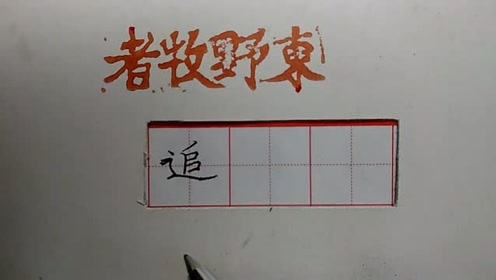 東野牧者
追